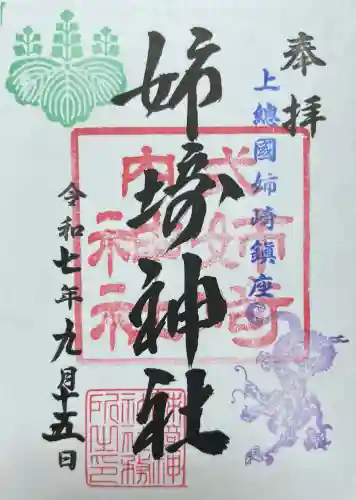 奉拝
上總國姉崎鎮座
姉埼神社
令和七年九月十五日
式内
姉埼
神社